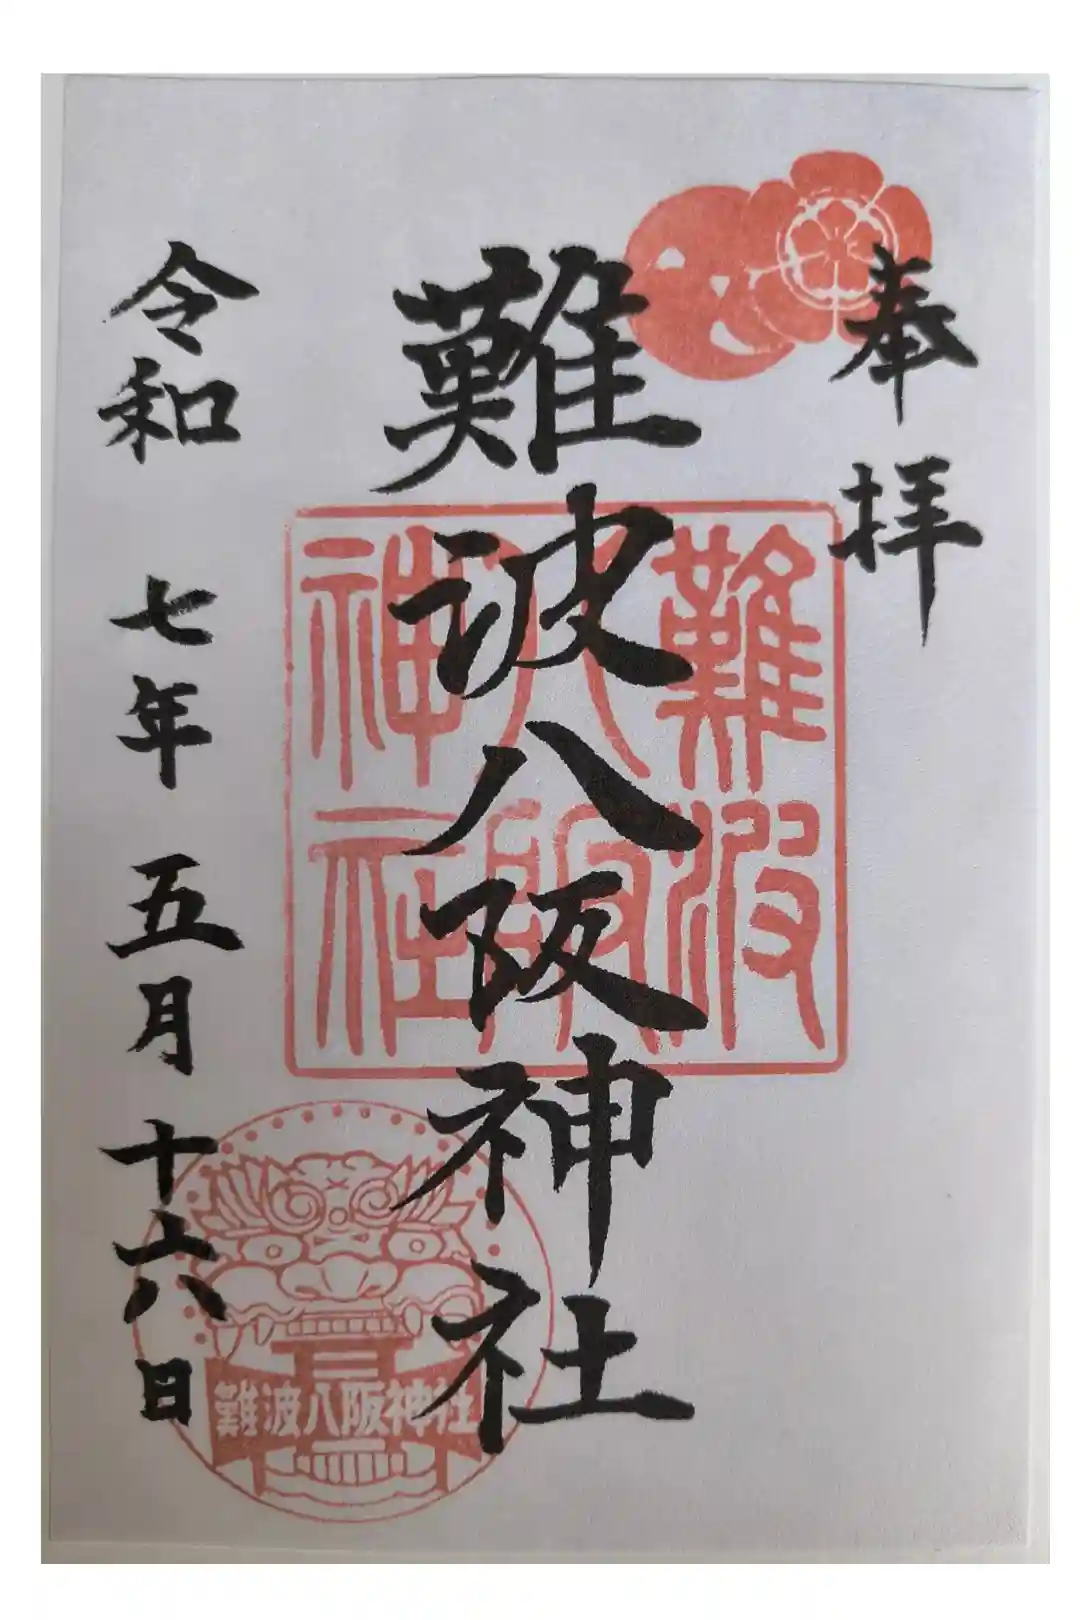 奉拝
難波八阪神社
令和七年五月十六日
難波
八阪
神社
難波八阪神社